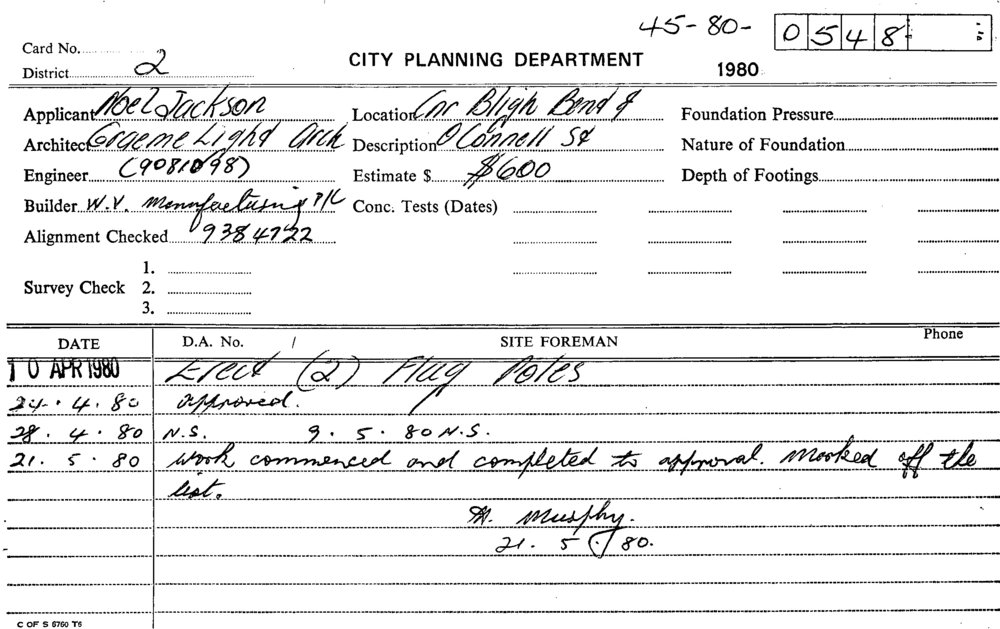 45-80- 0548
Card No.
District 2
CITY PLANNING DEPARTMENT
1980
Applicant Noel Jackson
Location Cnr Bligh Bend &
Foundation Pressure
Architect Graeme Light Arch
Description O'Connell St
Nature of Foundation
Engineer (9081098)
Estimate $ $600
Depth of Footings
Builder W.V. Manufacturing P/L
Conc. Tests (Dates)
Alignment Checked 9384722
1.
Survey Check 2.
3.
DATE D.A. No. / SITE FOREMAN Phone
10 APR 1980 Erect (2) Flag Poles
24. 4. 80 approved.
28. 4. 80 N.S. 9. 5. 80 N.S.
21. 5. 80 work commenced and completed to approval. Marked off the
list.
M. Murphy.
21. 5. 80.
C OF S 6760 T6